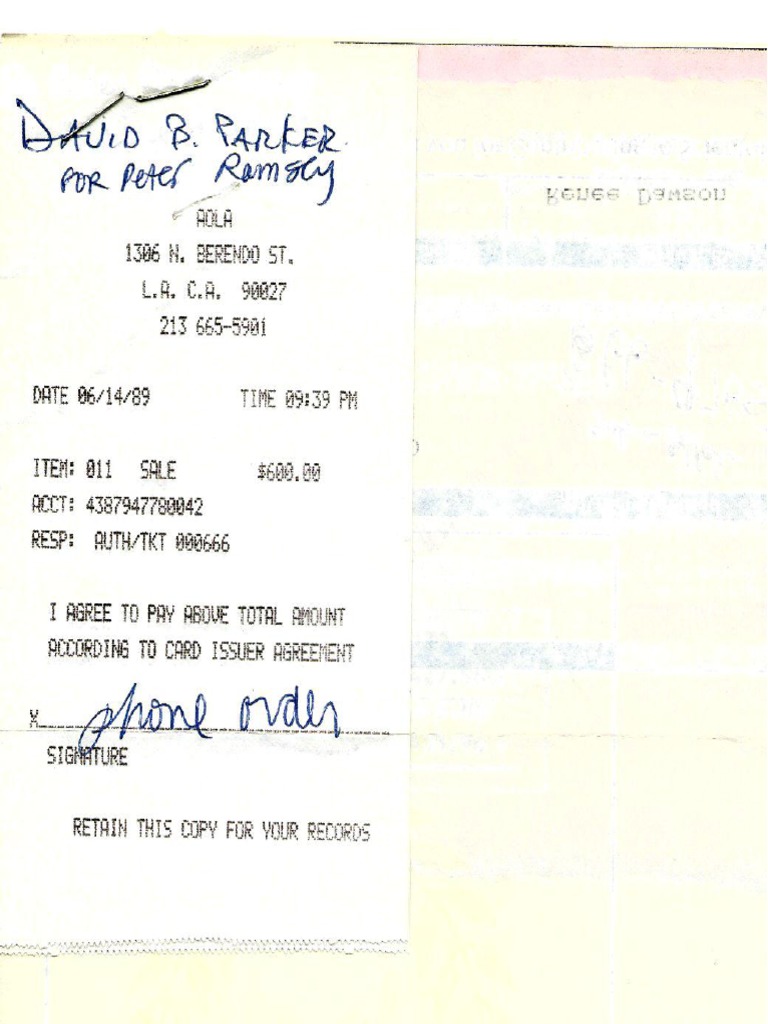 DAVID B. PARKER
FOR Peter Ramsey
AOLA
1306 N. BERENDO ST.
L.A. C.A. 90027
213 665-5901
DATE 06/14/89 TIME 09:39 PM
ITEM: 011 SALE $600.00
ACCT: 4387947780042
RESP: AUTH/TKT 000666
I AGREE TO PAY ABOVE TOTAL AMOUNT
ACCORDING TO CARD ISSUER AGREEMENT
X phone order
SIGNATURE
RETAIN THIS COPY FOR YOUR RECORDS
Renee Dawson